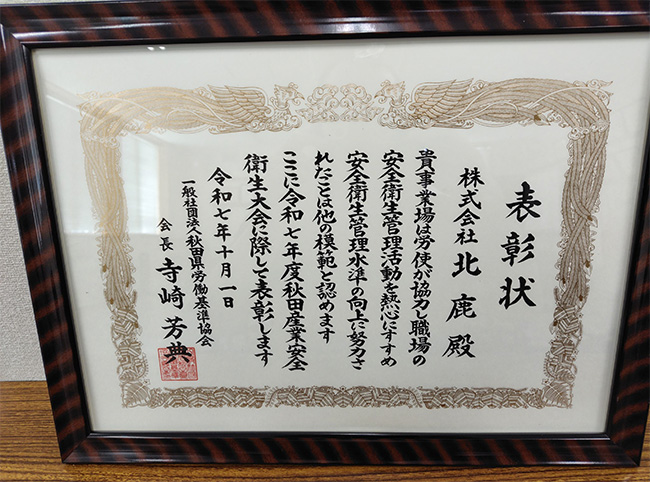 表彰状
株式会社 北鹿 殿
貴事業場は労使が協力し職場の
安全衛生管理活動を熱心にすすめ
安全衛生管理水準の向上に努力さ
れたことは他の模範と認めます
ここに令和七年度秋田産業安全
衛生大会に際して表彰します
令和七年十月一日
一般社団法人秋田県労働基準協会
会長 寺崎芳典